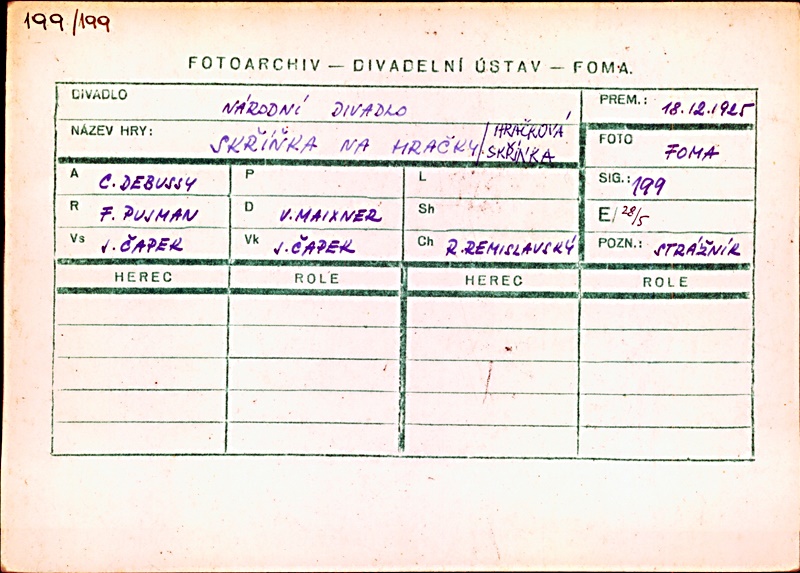 199/199
FOTOARCHIV — DIVADELNÍ ÚSTAV — FOMA.
DIVADLO NÁRODNÍ DIVADLO PREM.: 18.12.1925
NÁZEV HRY: SKŘÍŇKA NA HRAČKY/HRAČKOVÁ SKŘÍNKA FOTO FOMA
A C. DEBUSSY P L SIG.: 199
R F. PUJMAN D V. MAIXNER Sh E/28/5
Vs J. ČAPEK Vk J. ČAPEK Ch R. REMISLAVSKÝ POZN.: STRÁŽNÍK
HEREC ROLE HEREC ROLE